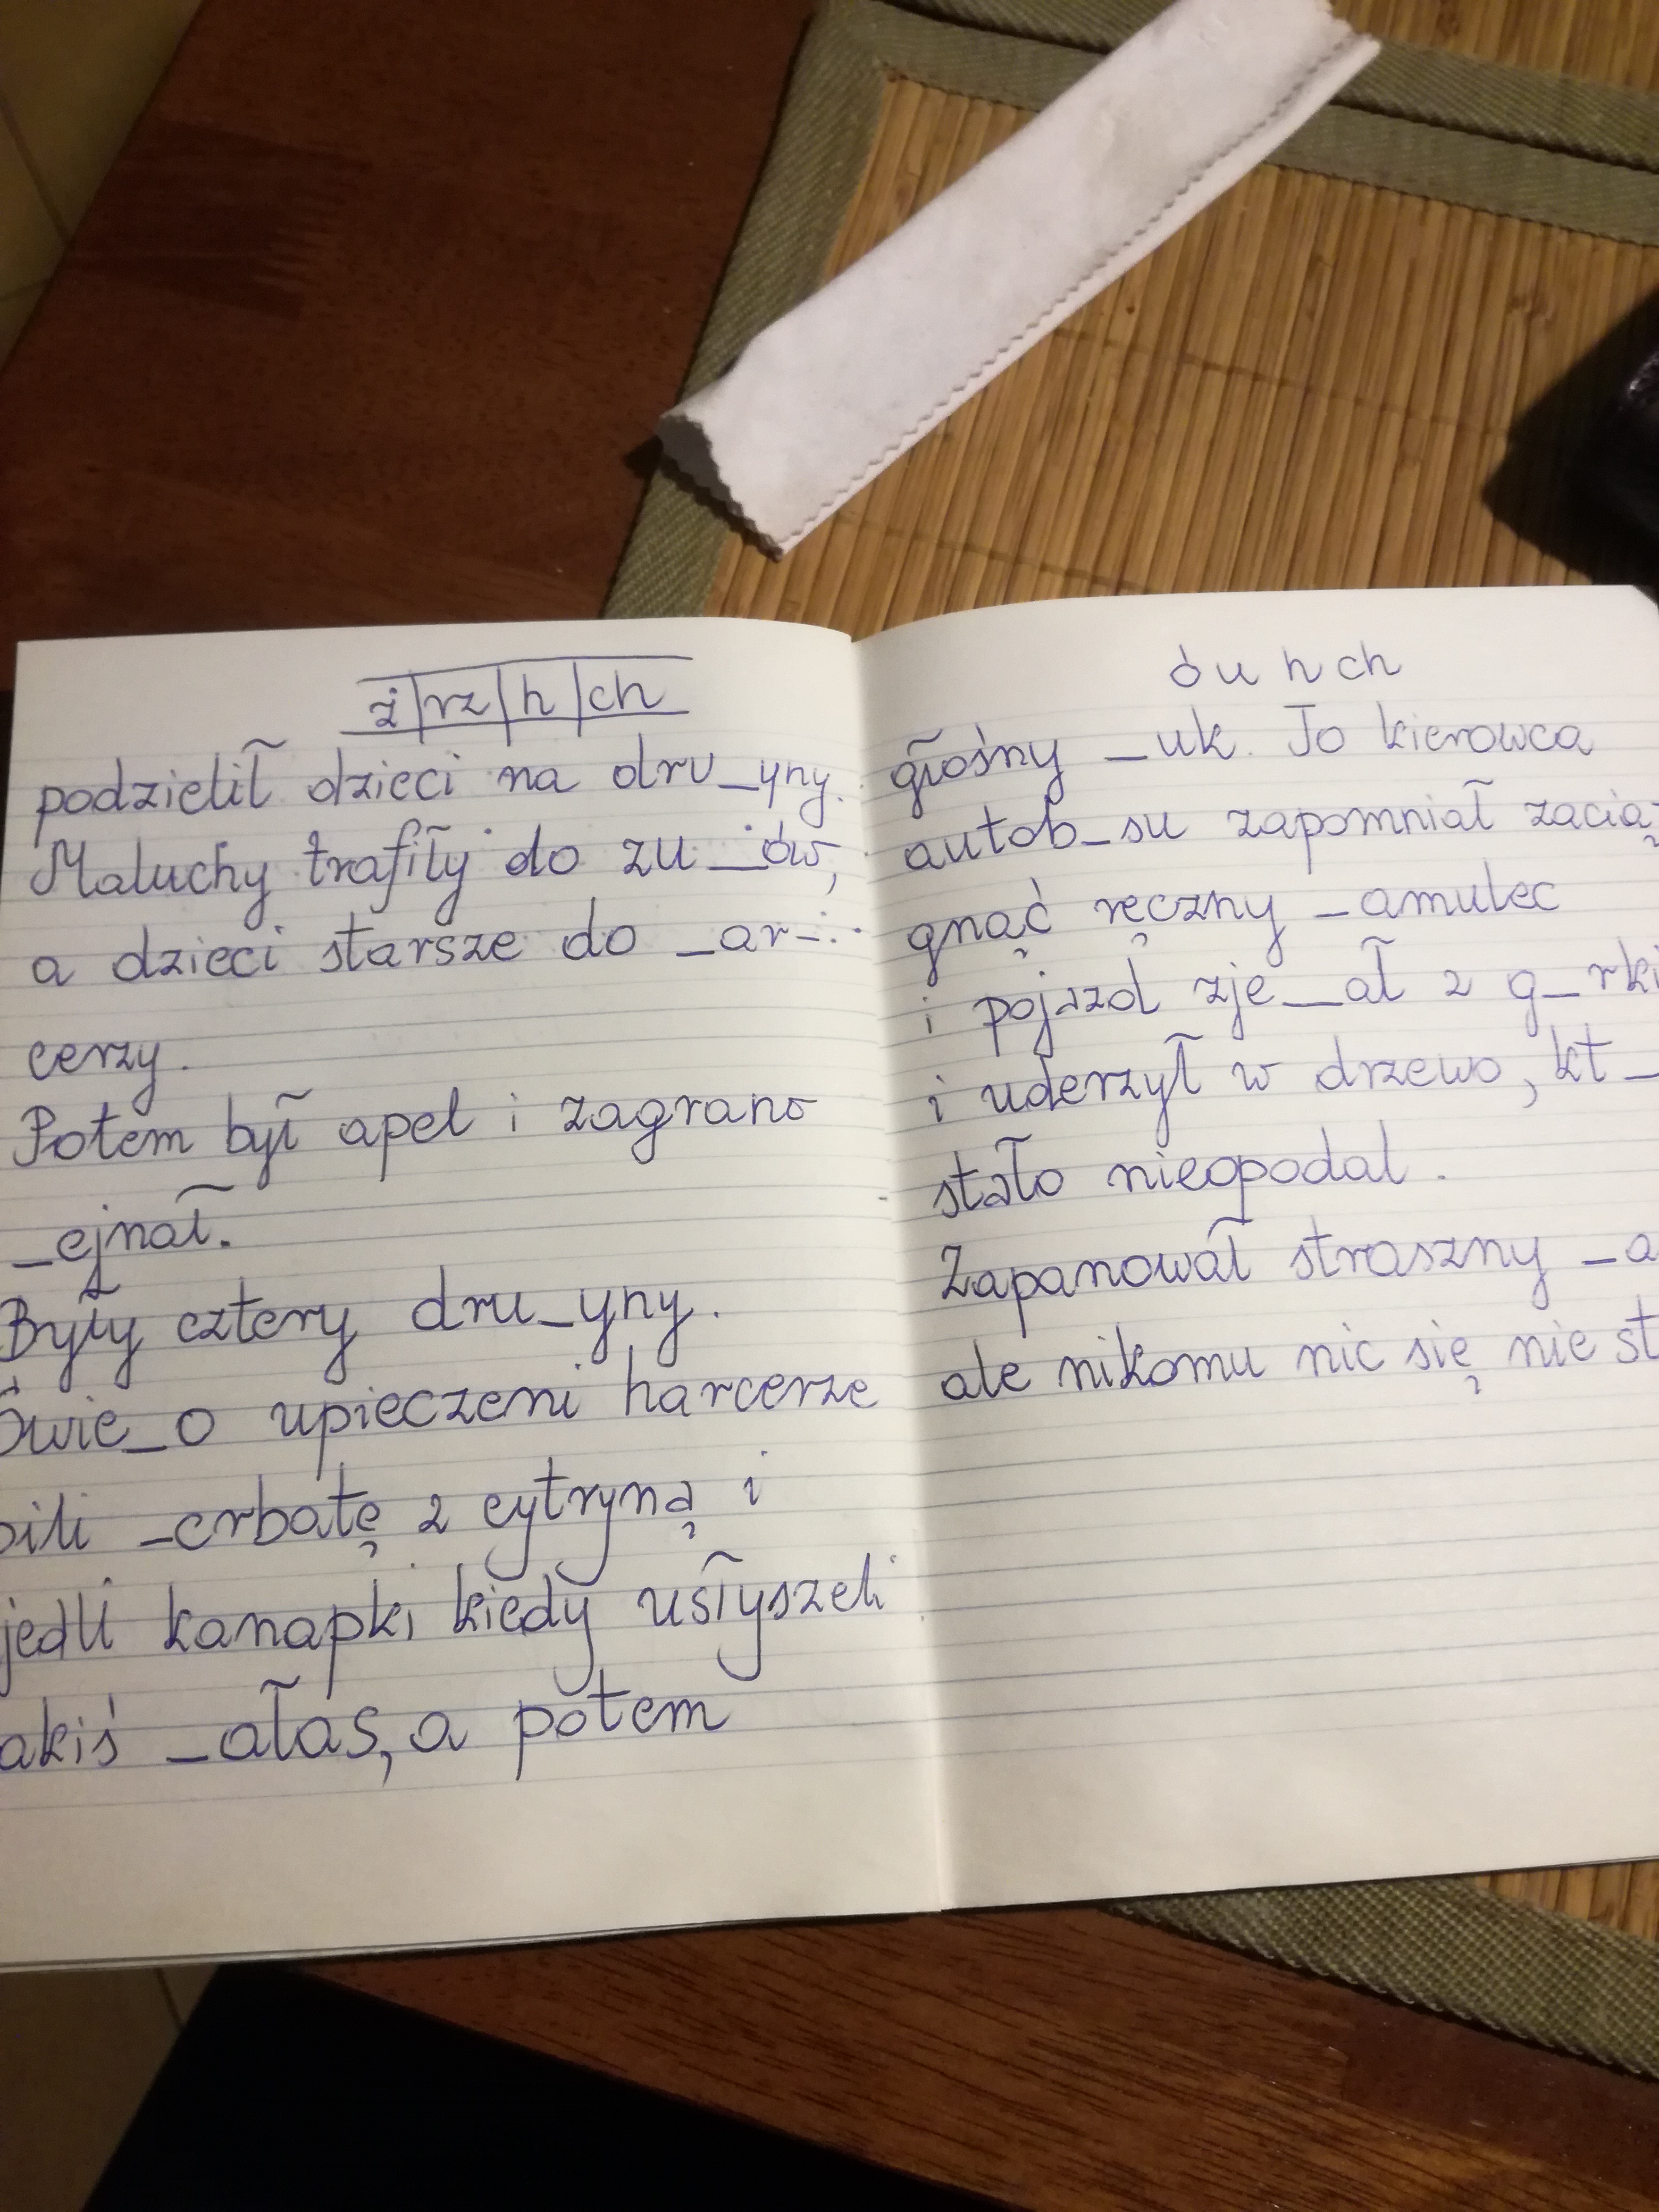 ż rz h ch
podzielił dzieci na dru_yny.
Maluchy trafiły do zu_ów,
a dzieci starsze do _ar-
cerzy.
Potem był apel i zagrano
_ejnał.
Były cztery dru_yny.
Świe_o upieczeni harcerze
pili _erbatę z cytryną i
jedli kanapki kiedy usłyszeli
akiś _ałas, a potem
ó u h ch
głośny _uk. To kierowca
autob_su zapomniał zacią
gnąć ręczny _amulec
i pojazd zje_ał z g_rki
i uderzył w drzewo, kt_
stało nieopodal.
Zapanował straszny _a
ale nikomu nic się nie st